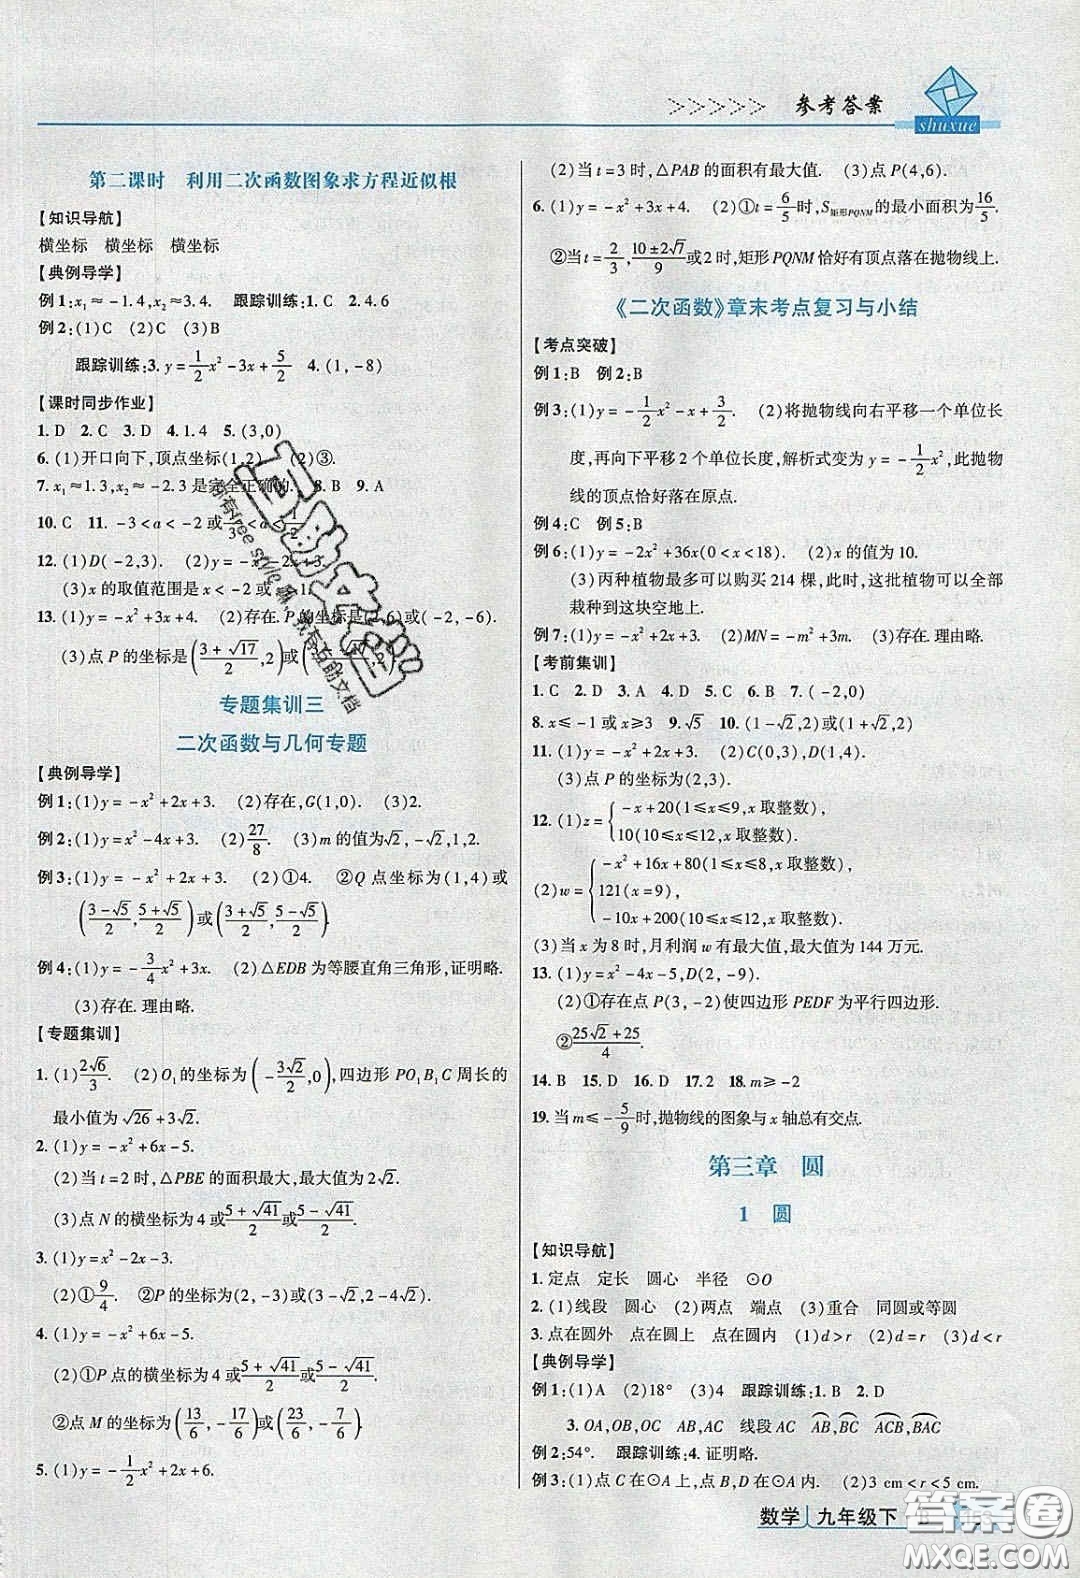 >>>>> 参考答案
shuxue
第二课时 利用二次函数图象求方程近似根
【知识导航】
横坐标 横坐标 横坐标
【典例导学】
例1:x₁≈-1.4,x₂≈3.4. 跟踪训练:1.C 2.4.6
例2:(1)C (2)C (3)B
跟踪训练:3.y=1/2x²-3x+5/2 4.(1,-8)
【课时同步作业】
1.D 2.C 3.D 4.1.4 5.(3,0)
6.(1)开口向下,顶点坐标(1,2) (2)③.
7.x₁≈1.3,x₂≈-2.3是完全正确的. 8.B 9.A
10.C 11.-3<a<-2或1/3<a<1/2
12.(1)D(-2,3). (2)y=-x²-2x+3.
(3)x的取值范围是x<-2或
13.(1)y=-x²+3x+4. (2)存在.P的坐标是(2,6)或(-2,-6).
(3)点P的坐标是((3+√17)/2,2)或
专题集训三
二次函数与几何专题
【典例导学】
例1:(1)y=-x²+2x+3. (2)存在,G(1,0). (3)2.
例2:(1)y=x²-4x+3. (2)27/8. (3)m的值为√2,-√2,1,2.
例3:(1)y=-x²+2x+3. (2)①4. ②Q点坐标为(1,4)或
((3-√5)/2,(5+√5)/2)或((3+√5)/2,(5-√5)/2).
例4:(1)y=-3/4x²+3x. (2)△EDB为等腰直角三角形,证明略.
(3)存在.理由略.
【专题集训】
1.(1)2√6/3. (2)O₁的坐标为(-3√2/2,0),四边形PO₁B₁C周长的
最小值为√26+3√2.
2.(1)y=-x²+6x-5.
(2)当t=2时,△PBE的面积最大,最大值为2√2.
(3)点N的横坐标为4或(5+√41)/2或(5-√41)/2.
3.(1)y=x²-2x-3.
(2)①9/4. ②P的坐标为(2,-3)或(3-√2,2-4√2).
4.(1)y=-x²+6x-5.
(2)①P点的横坐标为4或(5+√41)/2或(5-√41)/2.
②点M的坐标为(13/6,-17/6)或(23/6,-7/6).
5.(1)y=-1/2x²+2x+6.
(2)当t=3时,△PAB的面积有最大值. (3)点P(4,6).
6.(1)y=-x²+3x+4. (2)①t=6/5时,S矩形PQNM的最小面积为16/5.
②当t=2/3,(10±2√7)/9或2时,矩形PQNM恰好有顶点落在抛物线上.
《二次函数》章末考点复习与小结
【考点突破】
例1:B 例2:B
例3:(1)y=-1/2x²-x+3/2. (2)将抛物线向右平移一个单位长
度,再向下平移2个单位长度,解析式变为y=-1/2x²,此抛物
线的顶点恰好落在原点.
例4:C 例5:B
例6:(1)y=-2x²+36x(0<x<18). (2)x的值为10.
(3)丙种植物最多可以购买214棵,此时,这批植物可以全部
栽种到这块空地上.
例7:(1)y=-x²+2x+3. (2)MN=-m²+3m. (3)存在.理由略.
【考前集训】
1.C 2.D 3.A 4.D 5.B 6.B 7.(-2,0)
8.x≤-1或x≥3 9.√5 10.(1-√2,2)或(1+√2,2)
11.(1)y=-x²+2x+3. (2)C(0,3),D(1,4).
(3)点P的坐标为(2,3).
12.(1)z={-x+20(1≤x≤9,x取整数),
10(10≤x≤12,x取整数).
(2)w={-x²+16x+80(1≤x≤8,x取整数),
121(x=9),
-10x+200(10≤x≤12,x取整数).
(3)当x为8时,月利润w有最大值,最大值为144万元.
13.(1)y=x²-4x-5,D(2,-9).
(2)①存在点P(3,-2)使四边形PEDF为平行四边形.
②(25√2+25)/4.
14.B 15.D 16.D 17.2 18.m≥-2
19.当m≤-5/9时,抛物线的图象与x轴总有交点.
第三章 圆
1 圆
【知识导航】
1.定点 定长 圆心 半径 ⊙O
2.(1)线段 圆心 (2)两点 端点 (3)重合 同圆或等圆
3.点在圆外 点在圆上 点在圆内 (1)d>r (2)d=r (3)d<r
【典例导学】
例1:(1)A (2)18° (3)4 跟踪训练:1.B 2.D
3.OA,OB,OC AB,AC 线段AC A͡B,B͡C A͡CB,B͡AC
例2:54°. 跟踪训练:4.证明略.
例3:(1)点C在⊙A上,点B,D在⊙A内. (2)3 cm<r<5 cm.
数学 九年级下
答案圈
MXQE.COM